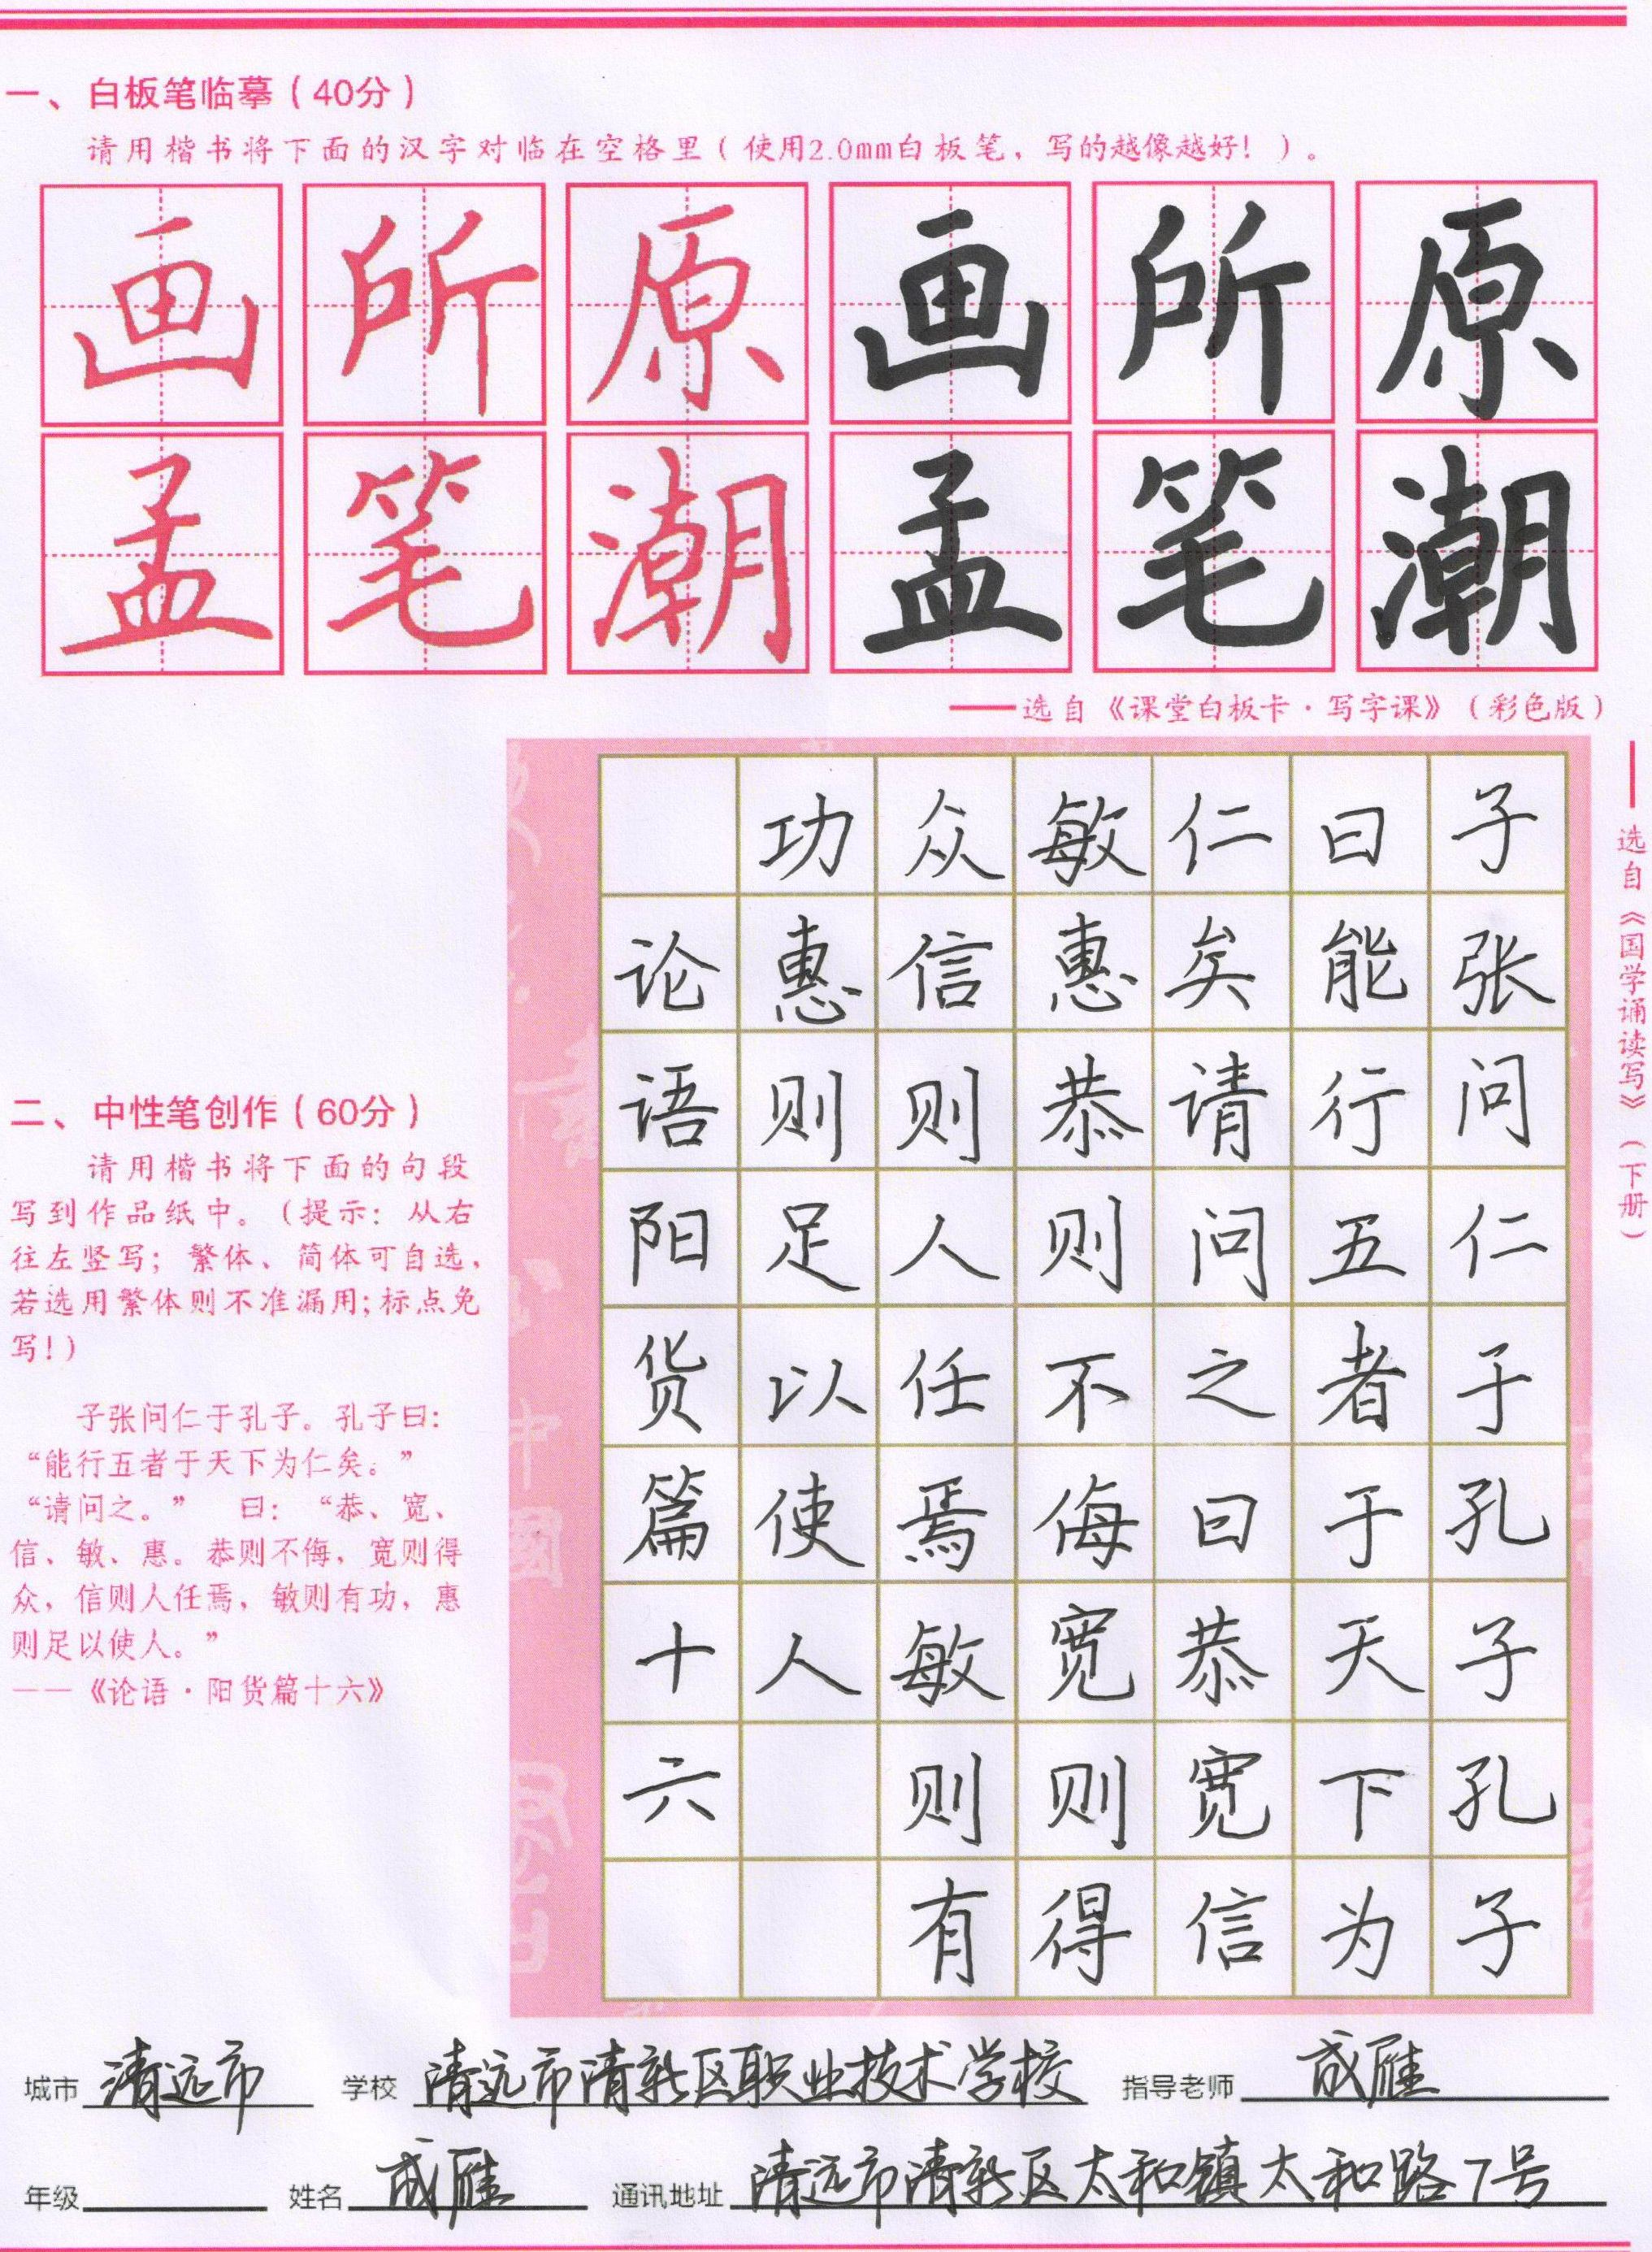 一、白板笔临摹（40分）
请用楷书将下面的汉字对临在空格里（使用2.0mm白板笔，写的越像越好！）。
画所原画所原
孟笔潮孟笔潮
——选自《课堂白板卡·写字课》（彩色版）
——选自《国学诵读写》（下册）
子张问仁于孔子孔子
曰能行五者于天下为
仁矣请问之曰恭宽信
敏惠恭则不侮宽则得
众信则人任焉敏则有
功惠则足以使人
论语阳货篇十六
二、中性笔创作（60分）
请用楷书将下面的句段
写到作品纸中。（提示：从右
往左竖写；繁体、简体可自选，
若选用繁体则不准漏用；标点免
写！）
子张问仁于孔子。孔子曰：
“能行五者于天下为仁矣。”
“请问之。” 曰：“恭、宽、
信、敏、惠。恭则不侮，宽则得
众，信则人任焉，敏则有功，惠
则足以使人。”
——《论语·阳货篇十六》
城市 清远市 学校 清远市清新区职业技术学校 指导老师 成雁
年级 姓名 成雁 通讯地址 清远市清新区太和镇太和路7号